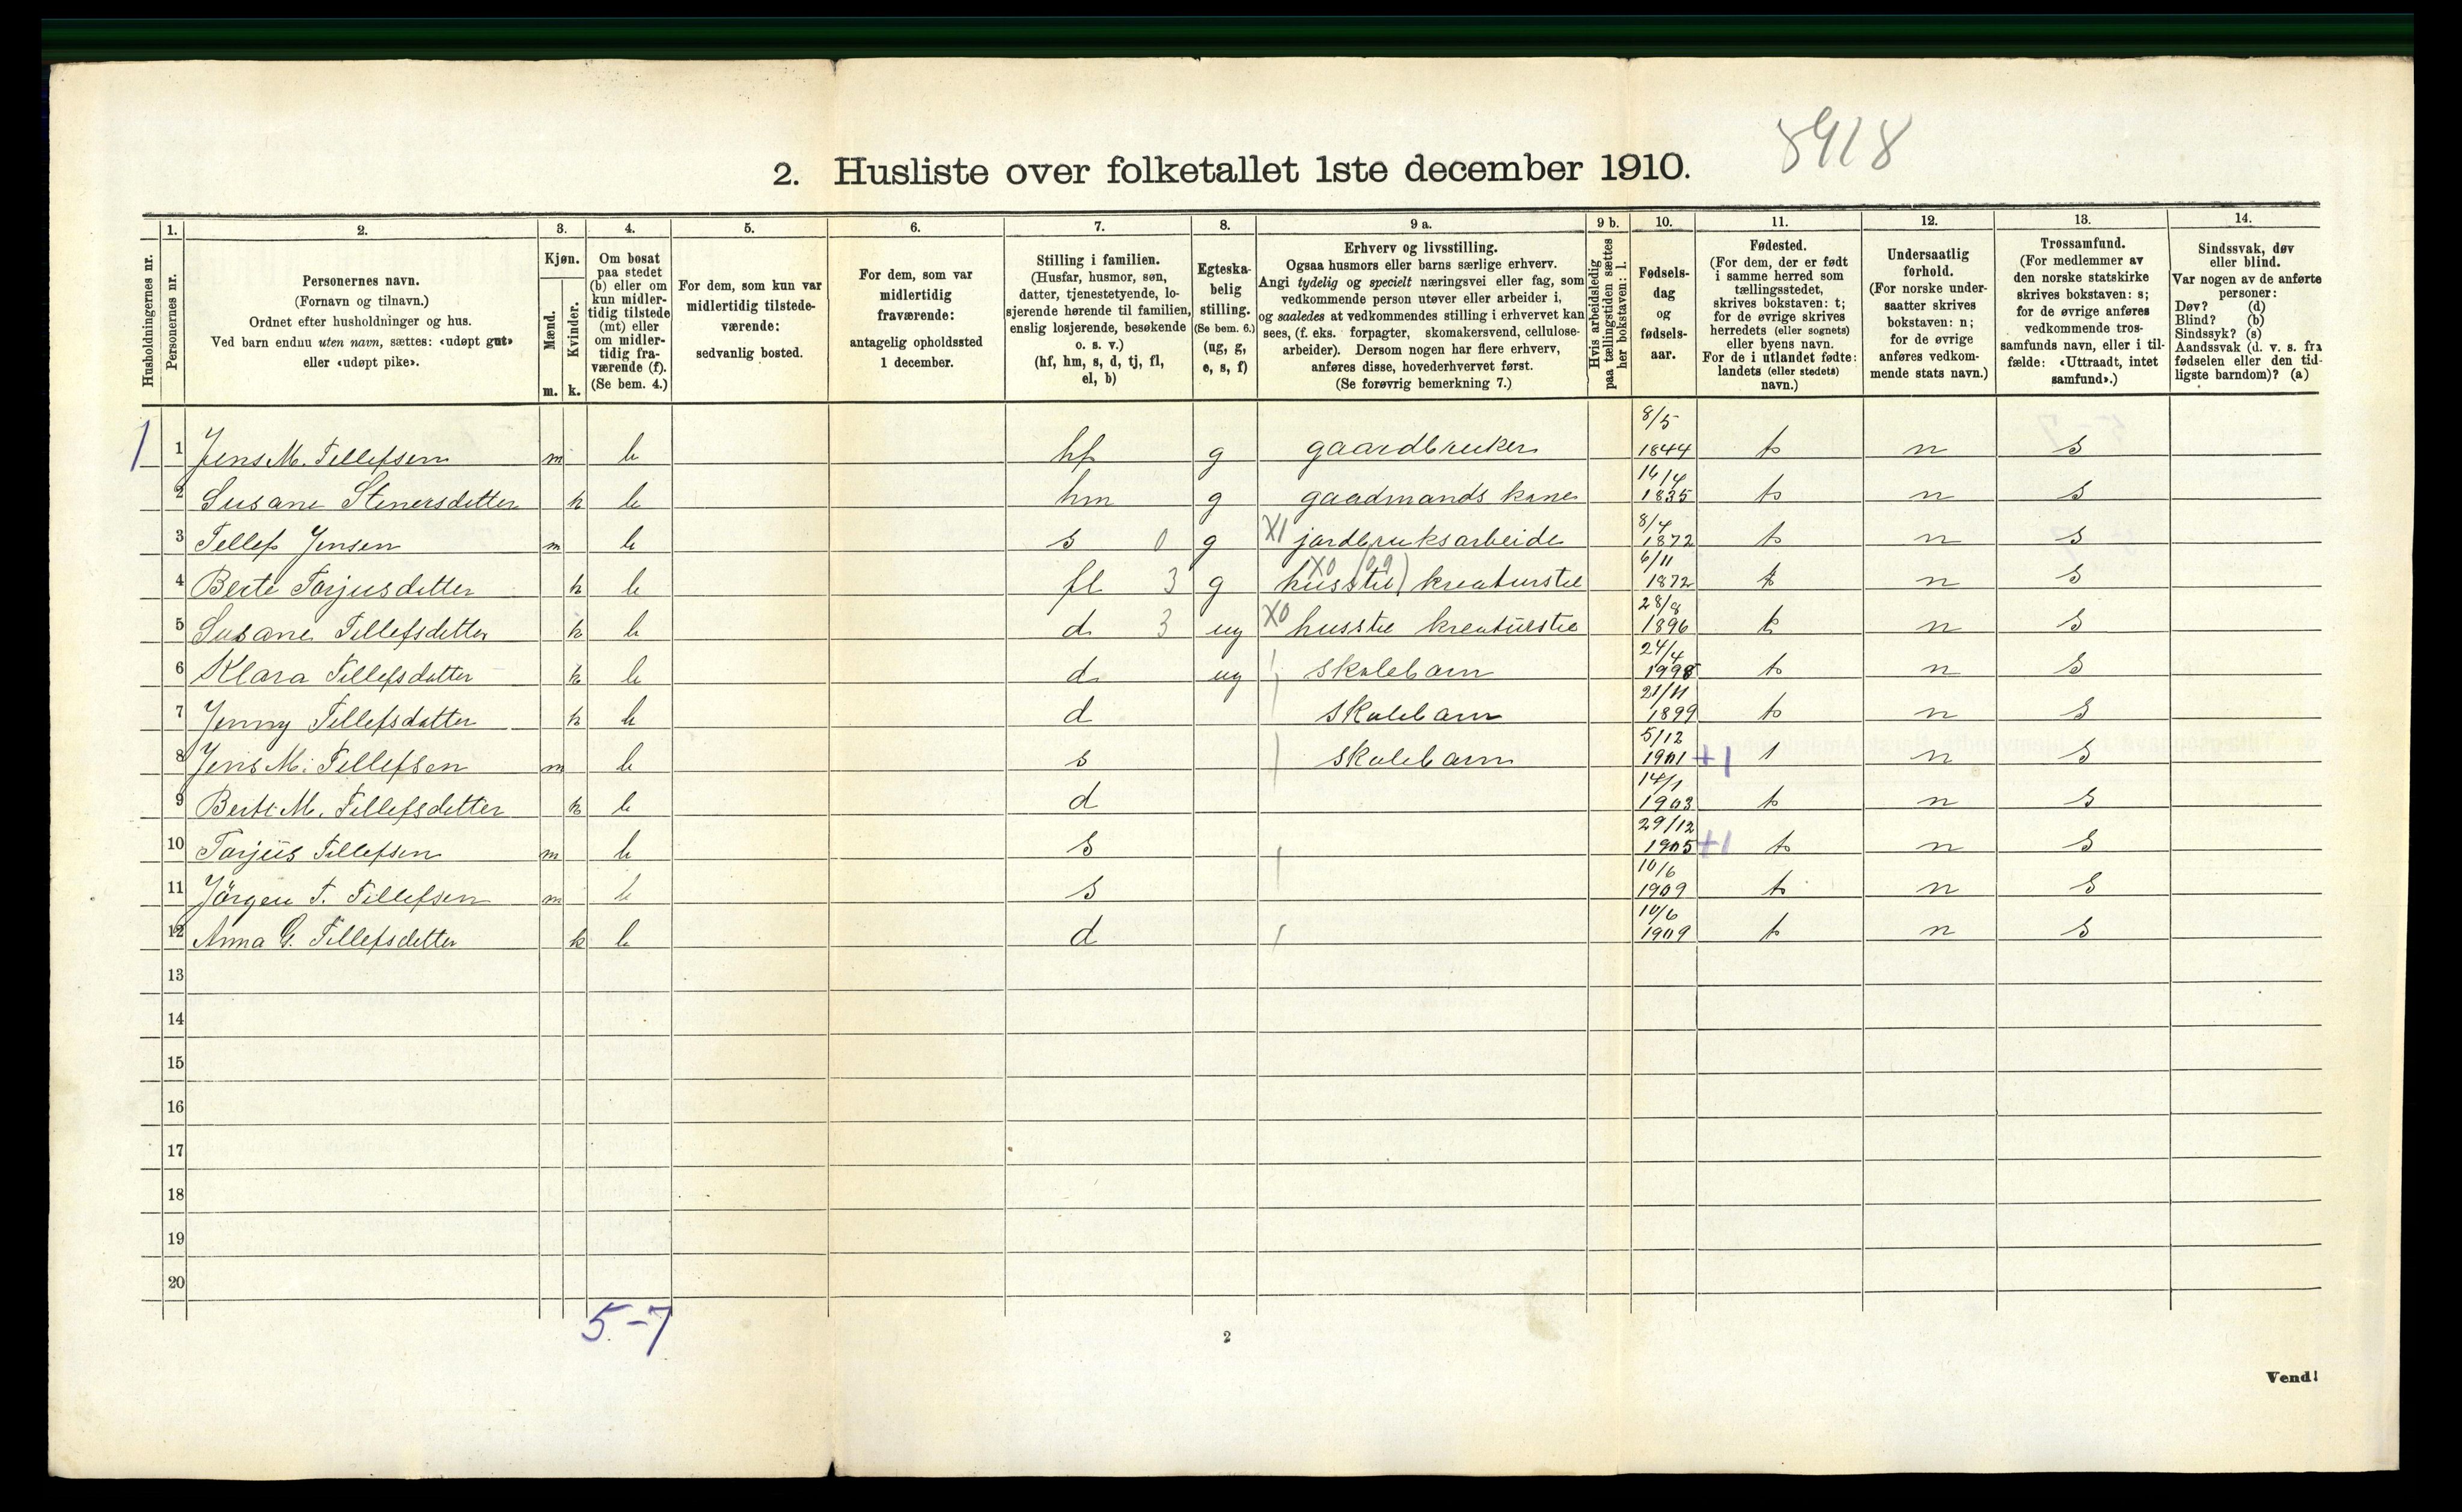 8918
2. Husliste over folketallet 1ste december 1910.
Husholdningernes nr.
1. Personernes nr.
2. Personernes navn. (Fornavn og tilnavn.) Ordnet efter husholdninger og hus. Ved barn endnu uten navn, sættes: «udøpt gut» eller «udøpt pike».
3. Kjøn. Mænd. m. Kvinder. k.
4. Om bosat paa stedet (b) eller om kun midlertidig tilstede (mt) eller om midlertidig fraværende (f). (Se bem. 4.)
5. For dem, som kun var midlertidig tilstedeværende: sedvanlig bosted.
6. For dem, som var midlertidig fraværende: antagelig opholdssted 1 december.
7. Stilling i familien. (Husfar, husmor, søn, datter, tjenestetyende, losjerende hørende til familien, enslig losjerende, besøkende o. s. v.) (hf, hm, s, d, tj, fl, el, b)
8. Egteskabelig stilling. (Se bem. 6.) (ug, g, e, s, f)
9 a. Erhverv og livsstilling. Ogsaa husmors eller barns særlige erhverv. Angi tydelig og specielt næringsvei eller fag, som vedkommende person utøver eller arbeider i, og saaledes at vedkommendes stilling i erhvervet kan sees, (f. eks. forpagter, skomakersvend, cellulosearbeider). Dersom nogen har flere erhverv, anføres disse, hovederhvervet først. (Se forøvrig bemerkning 7.)
9 b. Hvis arbeidsledig paa tællingstiden sættes her bokstaven: l.
10. Fødselsdag og fødselsaar.
11. Fødested. (For dem, der er født i samme herred som tællingsstedet, skrives bokstaven: t; for de øvrige skrives herredets (eller sognets) eller byens navn. For de i utlandet fødte: landets (eller stedets) navn.)
12. Undersaatlig forhold. (For norske undersaatter skrives bokstaven: n; for de øvrige anføres vedkommende stats navn.)
13. Trossamfund. (For medlemmer av den norske statskirke skrives bokstaven: s; for de øvrige anføres vedkommende trossamfunds navn, eller i tilfælde: «Uttraadt, intet samfund».)
14. Sindssvak, døv eller blind. Var nogen av de anførte personer: Døv? (d) Blind? (b) Sindssyk? (s) Aandssvak (d. v. s. fra fødselen eller den tidligste barndom)? (a)
1 1 Jens M. Tellefsen m b hf g gaardbruker 8/5 1844 t n s
2 Susane Stenersdatter k b hm g gaadmands kone 14/4 1835 t n s
3 Tellef Jensen m b s 0 g X1 jordbruksarbeide 8/4 1872 t n s
4 Berte Torjusdatter k b fl 3 g X0 husstel kreaturstel 6/11 1872 t n s
5 Susane Tellefsdatter k b d 3 ug X0 husstel kreaturstel 28/8 1896 t n s
6 Klara Tellefsdatter k b d ug skolebarn 24/4 1998 t n s
7 Jenny Tellefsdatter k b d skolebarn 21/11 1899 t n s
8 Jens M. Tellefsen m b s skolebarn 5/12 1901 +1 t n s
9 Berte M. Tellefsdatter k b d 14/1 1903 t n s
10 Torjus Tellefsen m b s 29/12 1905 +1 t n s
11 Jörgen T. Tellefsen m b s 10/6 1909 t n s
12 Anna G. Tellefsdatter k b d 10/6 1909 t n s
13
14
15
16
17
18
19
20
5-7
2
Vend!